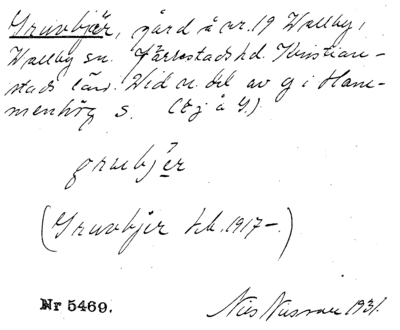 Gruvbjär, gård å nr. 19 Wallby,
Wallby sn. Järrestads hd. Kristian-
stads län. Vid n. del av g i Hane-
menhög s. (Ej å G.)
gruebjer
(Gruvbjer kb. 1917-.)
Nr 5469.
Nils 1931.